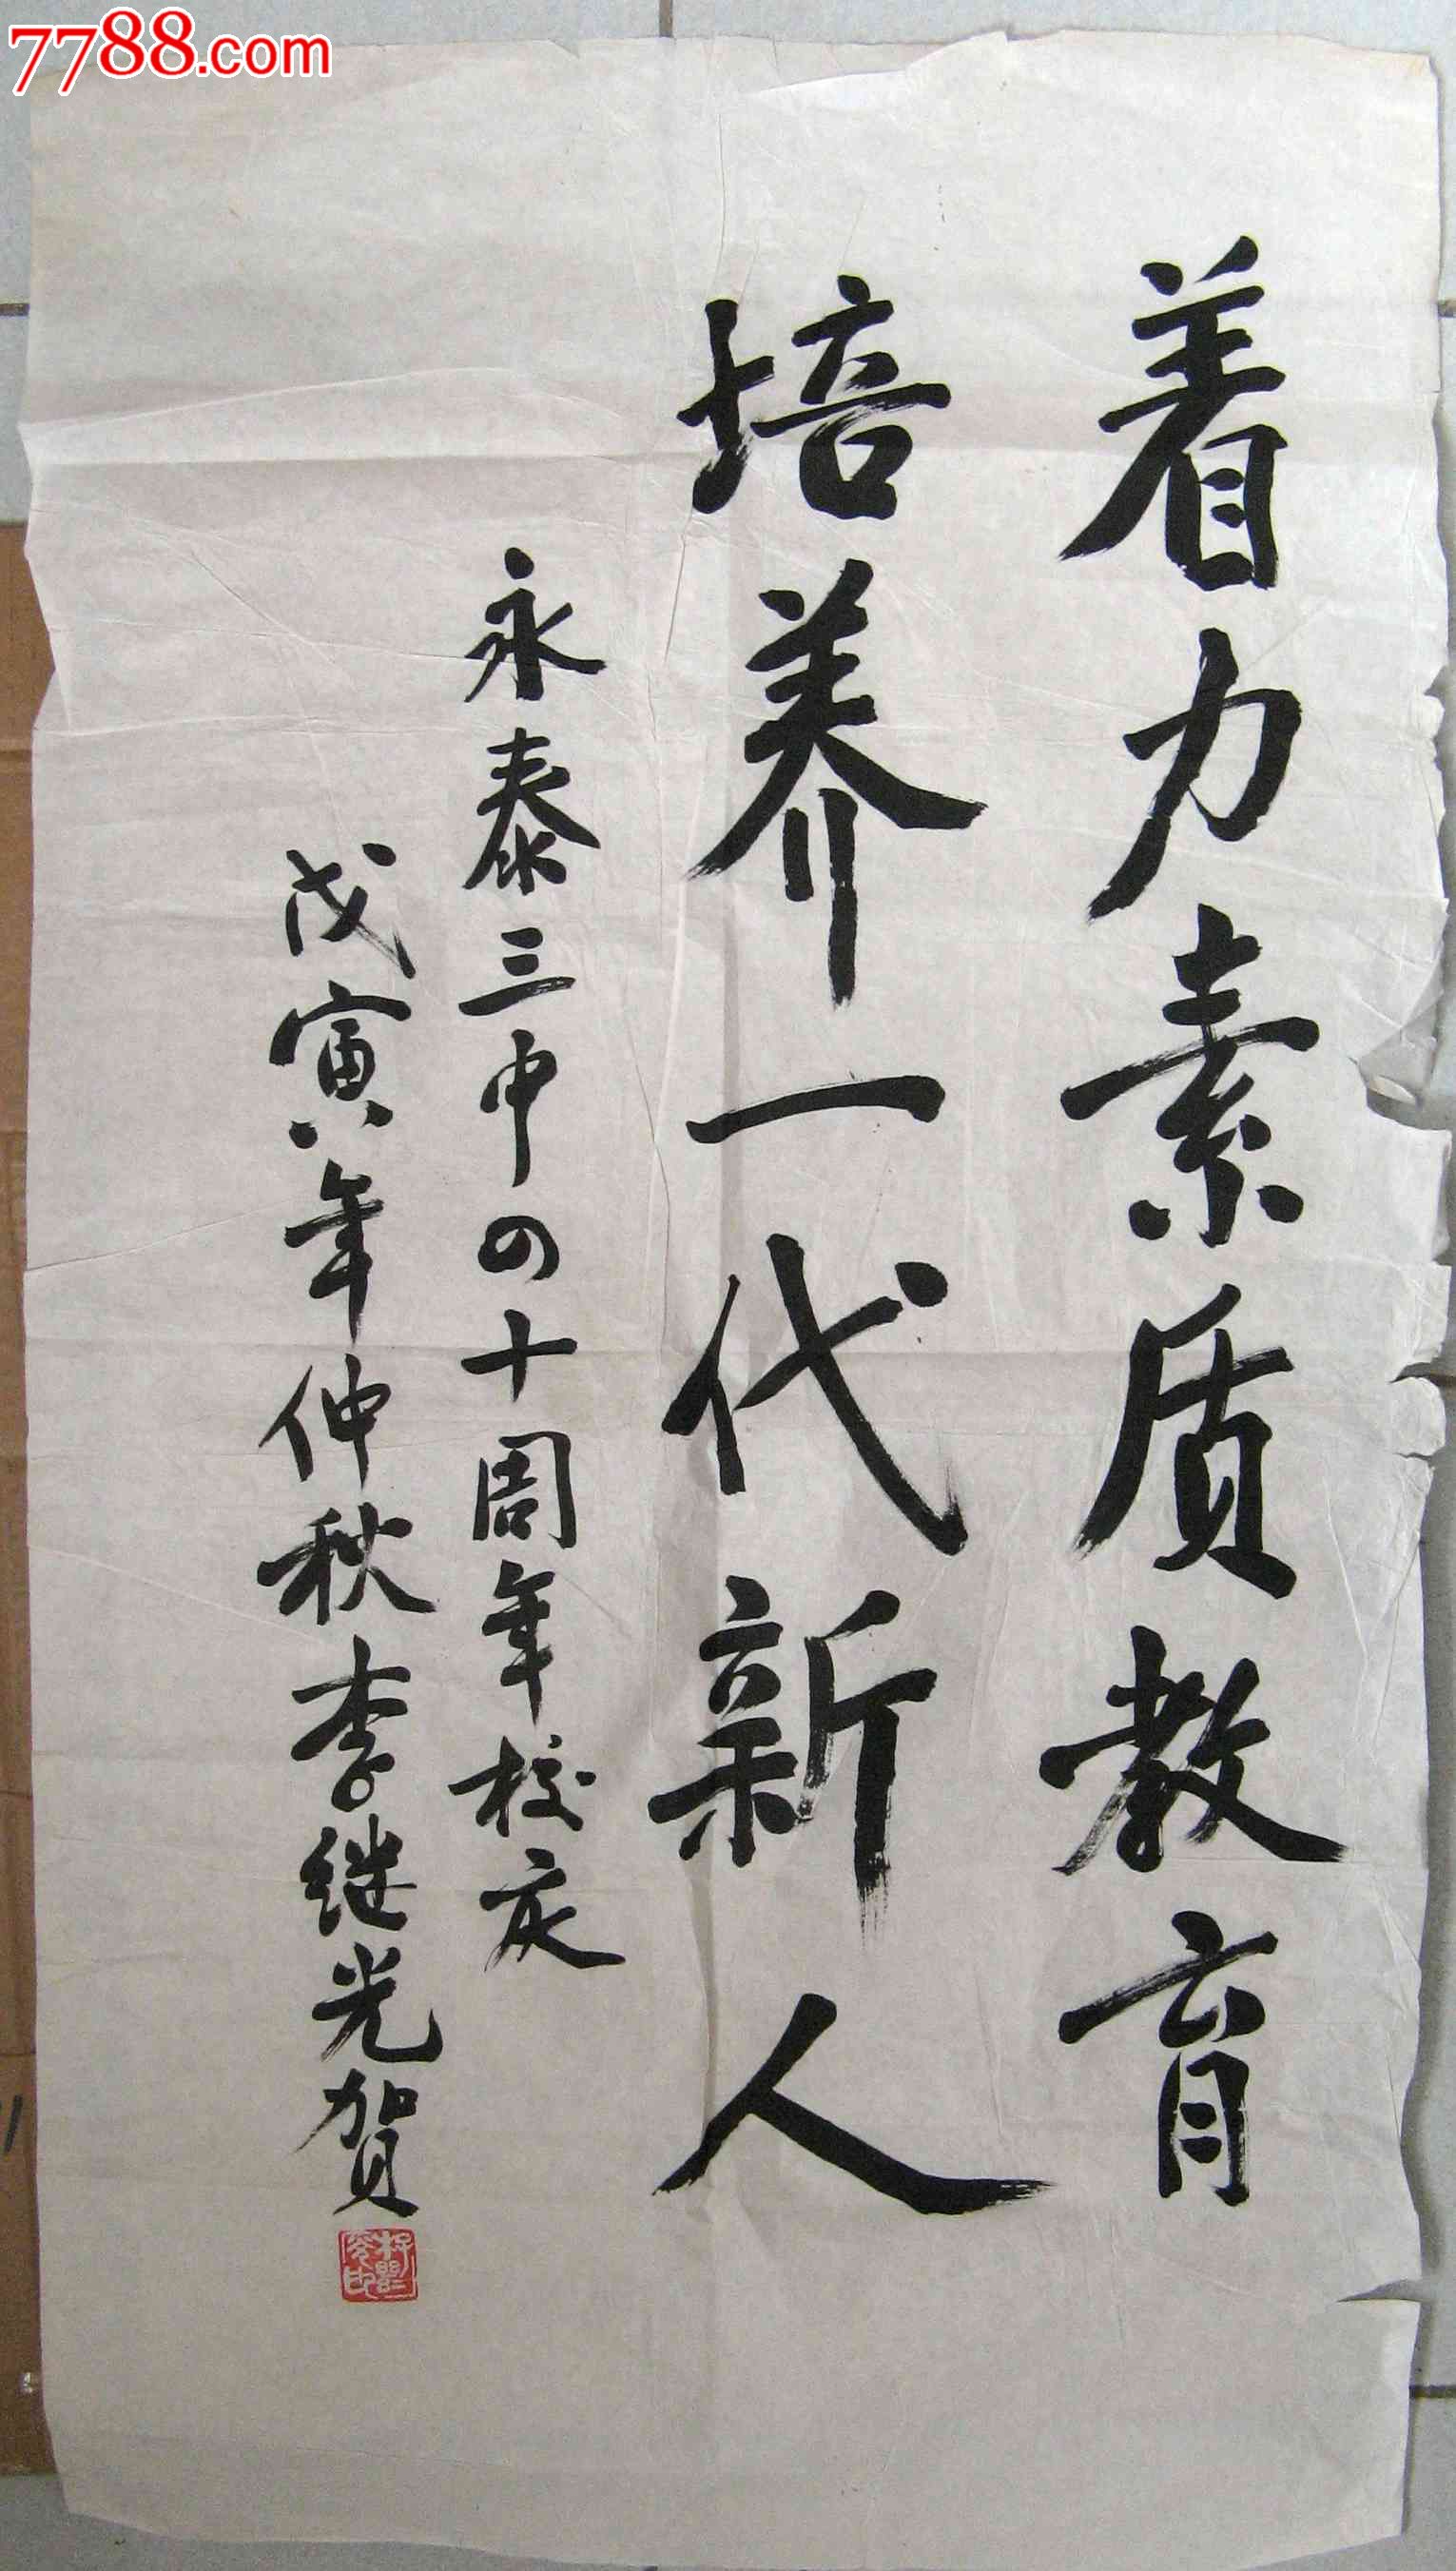 7788.com
着力素质教育
培养一代新人
永泰三中四十周年校庆
戊寅年仲秋李继光贺